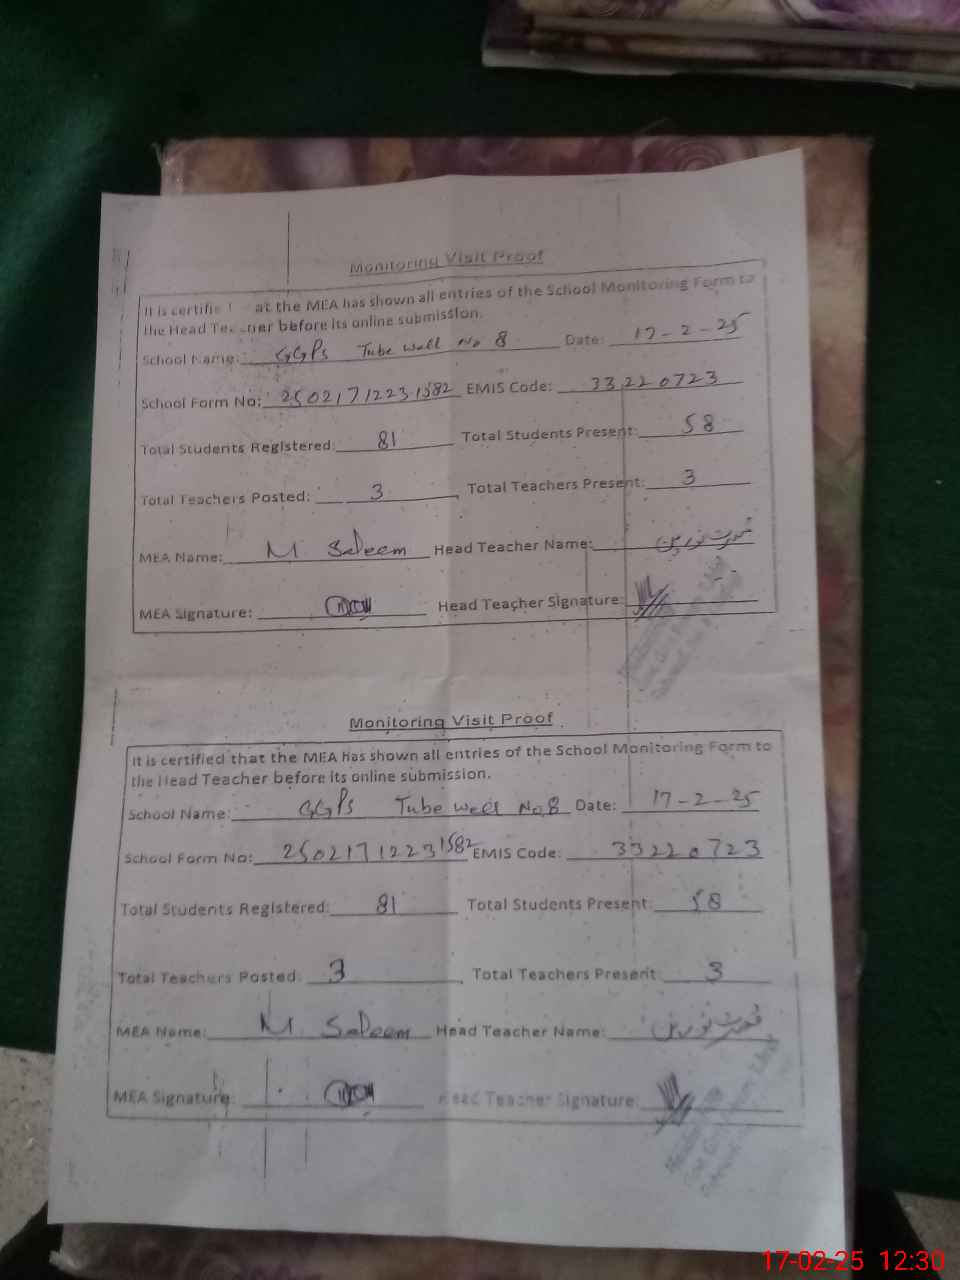 Monitoring Visit Proof
It is certifie at the MEA has shown all entries of the School Monitoring Form to
the Head Teacher before its online submission.
School Name: GGPS Tube Well No 8 Date: 17-2-25
School Form No: 2502171223 1582 EMIS Code: 33220723
Total Students Registered: 81 Total Students Present: 58
Total Teachers Posted: 3 Total Teachers Present: 3
MEA Name: M Saleem Head Teacher Name:
MEA Signature: Head Teacher Signature:
Monitoring Visit Proof
It is certified that the MEA has shown all entries of the School Monitoring Form to
the Head Teacher before its online submission.
School Name: GGPS Tube Well No 8 Date: 17-2-25
School Form No: 2502171223 1582 EMIS Code: 33220723
Total Students Registered: 81 Total Students Present: 58
Total Teachers Posted: 3 Total Teachers Present: 3
MEA Name: M Saleem Head Teacher Name:
MEA Signature: Head Teacher Signature:
17-02-25 12:30